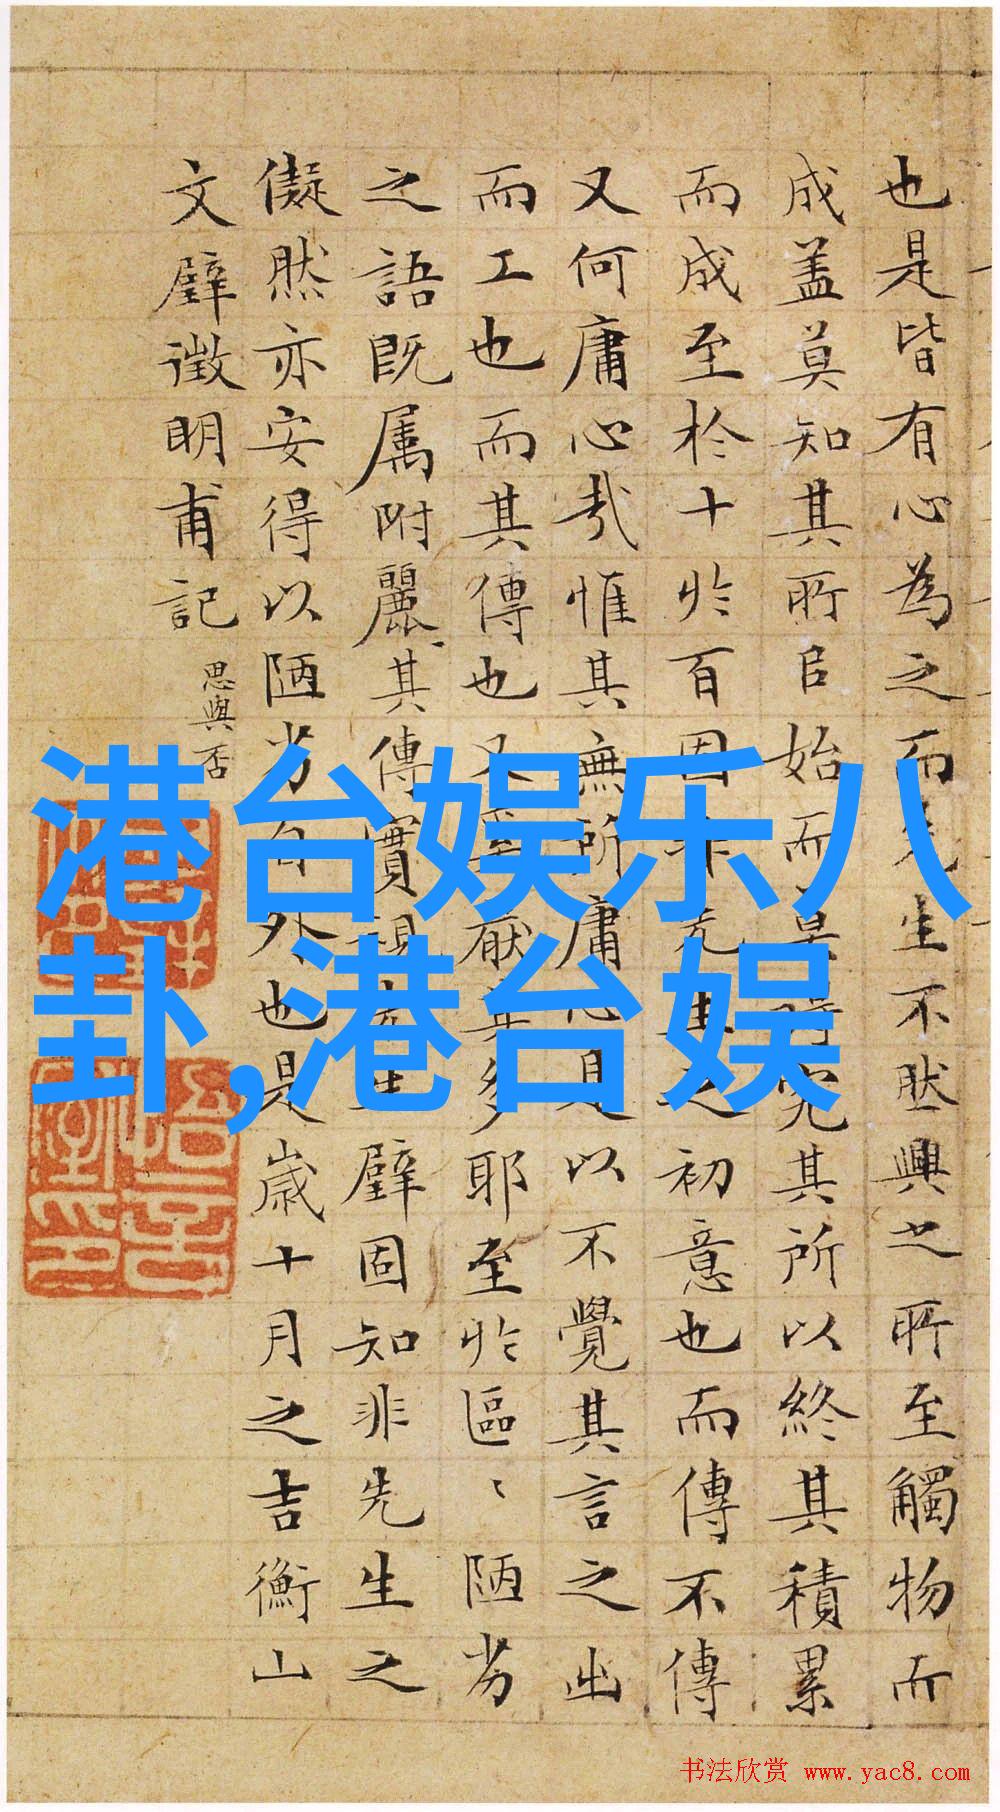 也是皆有心為之而先生不然興之所至觸物而
成盖莫知其所自始而其所以終其積累
而成至於十於百因非先生之初意也而傳不傳
又何庸心哉惟其無所庸心是以不覺其言之出
而工也而其傳也又奚厭其多耶至於區〻陋劣
之語既属附麗其傳實視先生璧固知非先生之
儗然亦安得以陋劣自外也是歲十月之吉衡山
文璧徵明甫記
思與否
港台娱乐八
卦,港台娱
书法欣赏 www.yac8.com